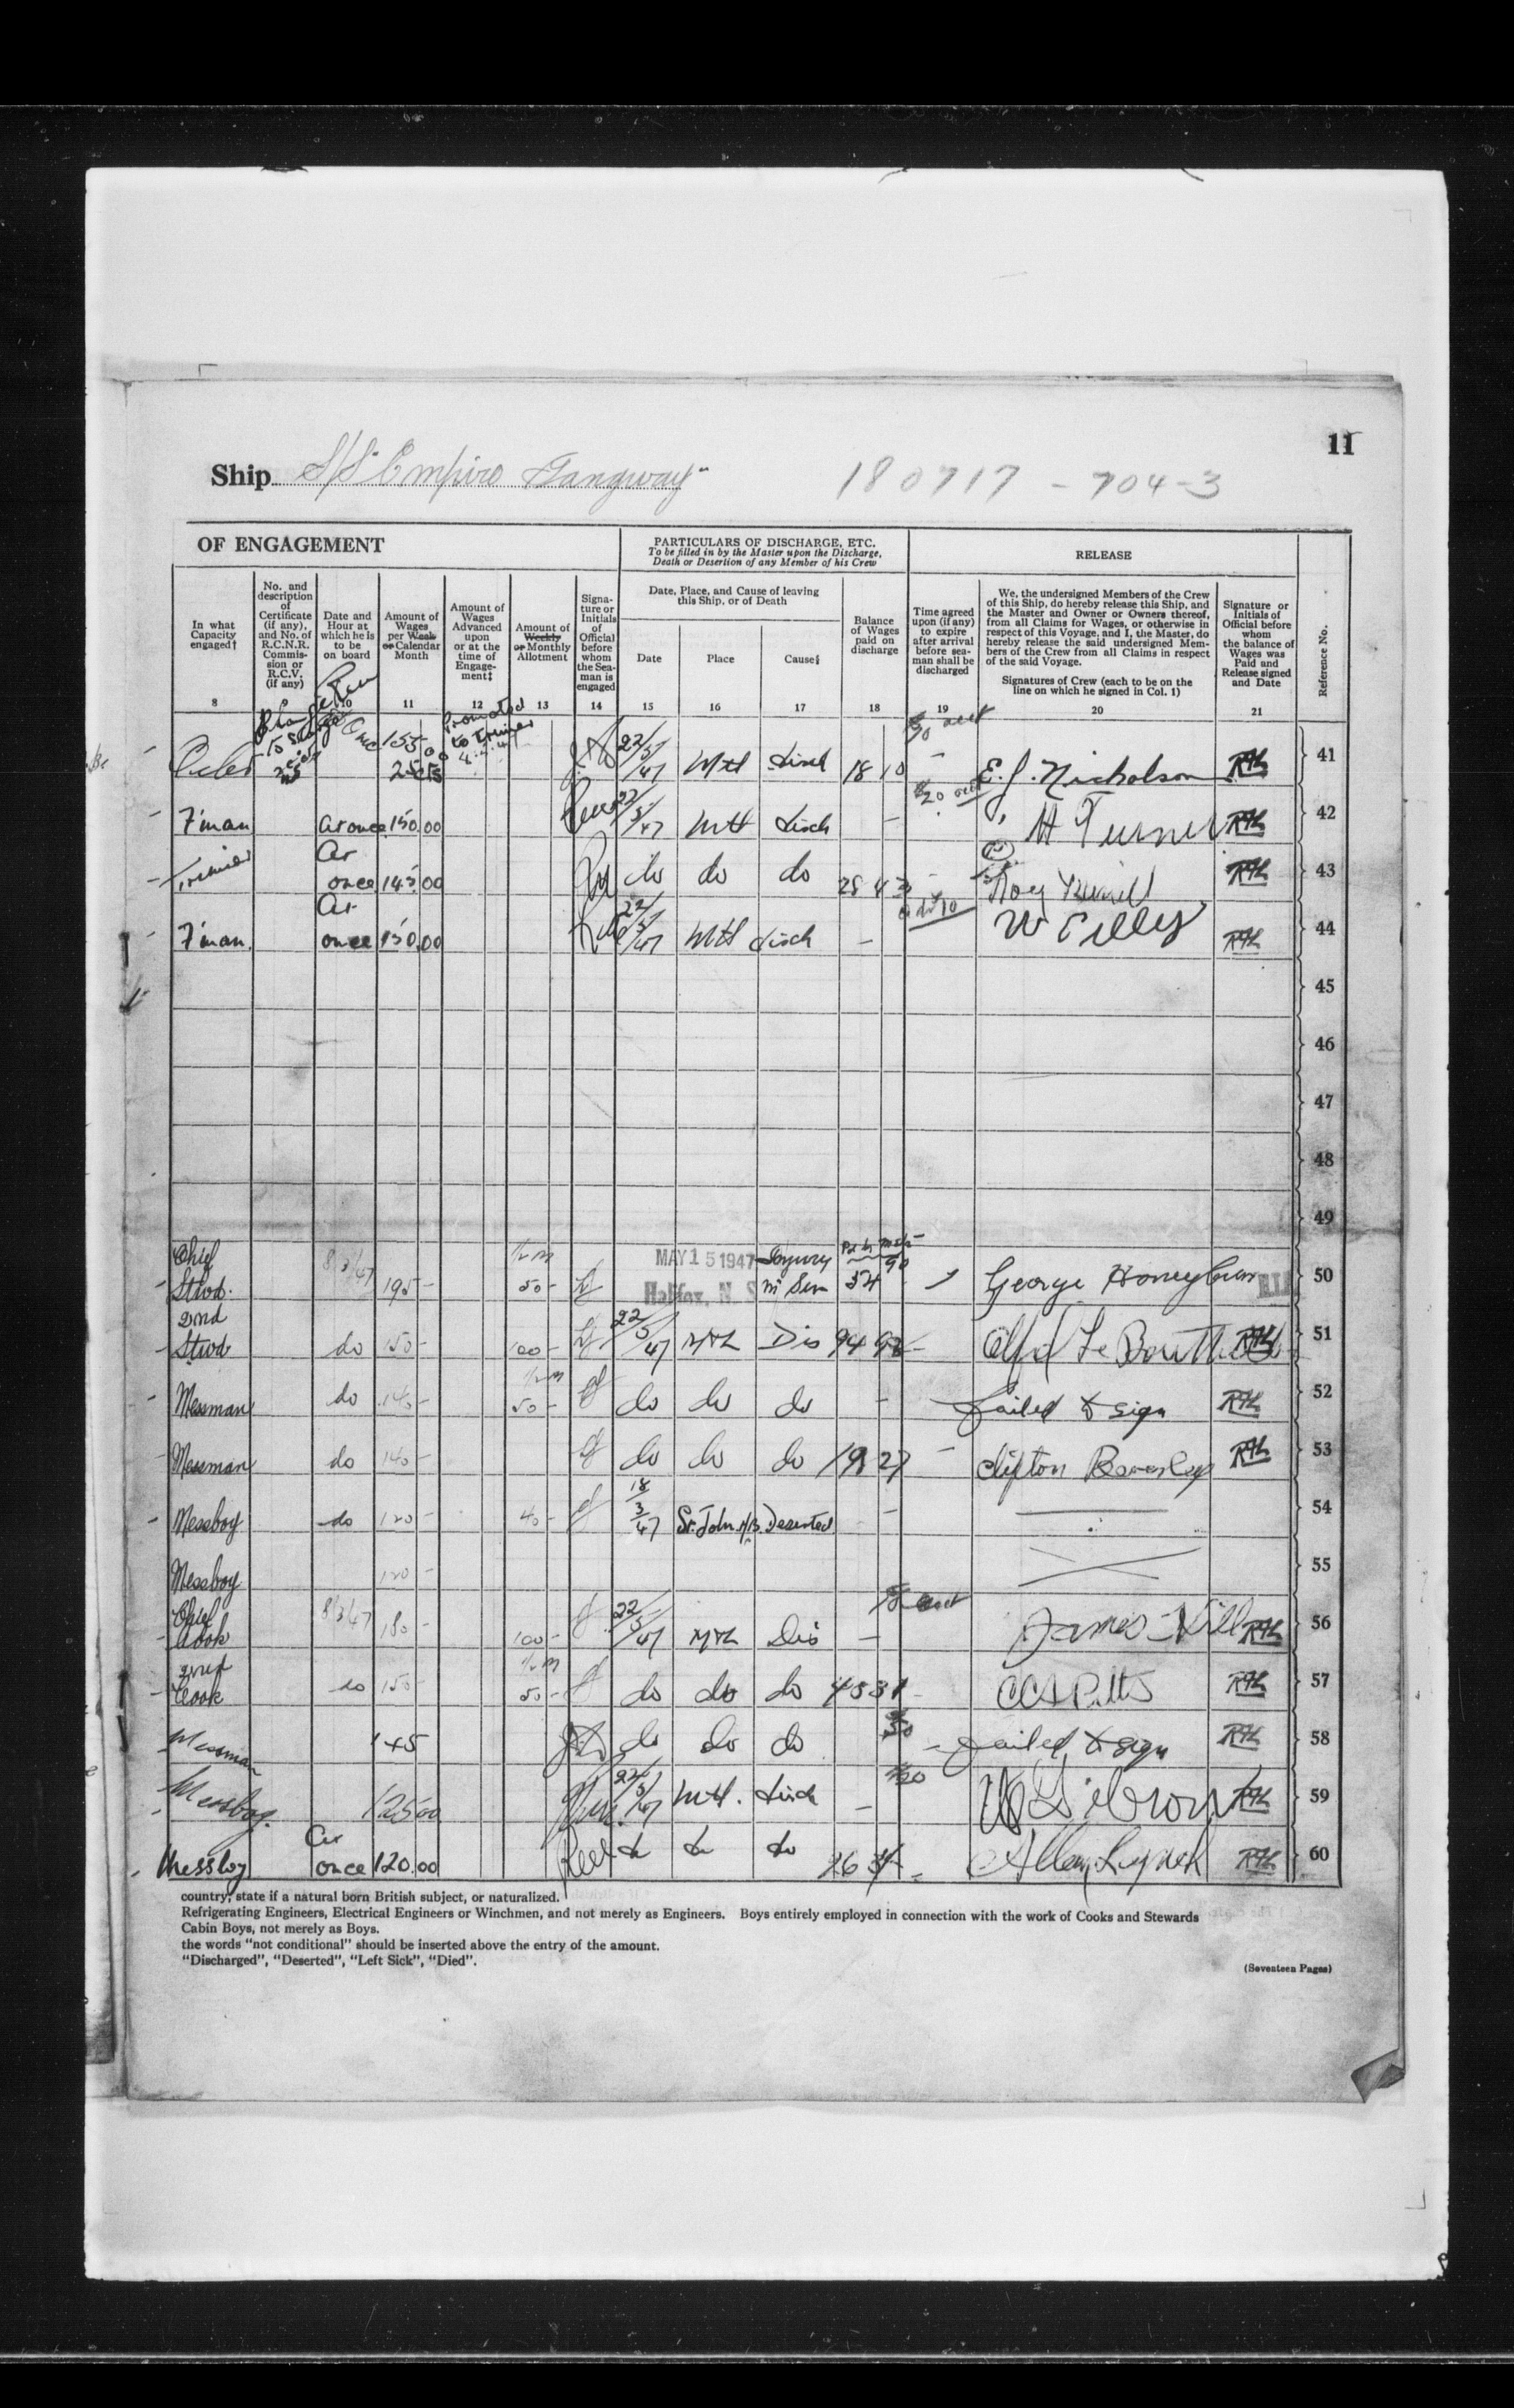 11
Ship S/S "Empire Gangway" 180717 - 704-3
OF ENGAGEMENT
PARTICULARS OF DISCHARGE, ETC.
To be filled in by the Master upon the Discharge,
Death or Desertion of any Member of his Crew
RELEASE
In what
Capacity
engaged†
8
No. and
description
of
Certificate
(if any),
and No. of
R.C.N.R.
Commis-
sion or
R.C.V.
(if any)
Date and
Hour at
which he is
to be
on board
10
Amount of
Wages
per Week
or Calendar
Month
11
Amount of
Wages
Advanced
upon
or at the
time of
Engage-
ment‡
12
Amount of
Weekly
or Monthly
Allotment
13
Signa-
ture or
Initials
of
Official
before
whom
the Sea-
man is
engaged
14
Date, Place, and Cause of leaving
this Ship, or of Death
Date
15
Place
16
Cause§
17
Balance
of Wages
paid on
discharge
18
Time agreed
upon (if any)
to expire
after arrival
before sea-
man shall be
discharged
19
We, the undersigned Members of the Crew
of this Ship, do hereby release this Ship, and
the Master and Owner or Owners thereof,
from all Claims for Wages, or otherwise in
respect of this Voyage, and I, the Master, do
hereby release the said undersigned Mem-
bers of the Crew from all Claims in respect
of the said Voyage.
Signatures of Crew (each to be on the
line on which he signed in Col. 1)
20
Signature or
Initials of
Official before
whom
the balance of
Wages was
Paid and
Release signed
and Date
21
Reference No.
Promoted
to Trimmer
155 00 22/5/47 Mtl Disch 18 10 E. J. Nicholson 41
F'man At once 150.00 22/5/47 Mtl Disch - H Turner 42
Trimmer At once 145 00 do do do 28 43 Roy 43
F'man. At once 150.00 22/5/47 Mtl disch - W 44
45
46
47
48
49
Chief Stwd. 8/3/47 195- ½ m 50- MAY 15 1947 Halifax, N. S Injury 54 90 George Honeyburn 50
2nd Stwd do 150- 100- 22/5/47 Mtl Dis 94 98 51
Messman do 140- ½ m 50- do do do - failed to sign 52
Messman do 140- do do do 19 27 Clifton Beverley 53
Messboy do 120- 40- 18/3/47 St. John N.B. Deserted - 54
Messboy 120- 55
Chief Cook 8/3/47 180- 100- 22/5/47 Mtl Dis - James Hill 56
2nd Cook do 150- ½ m 50- do do do 57
Messman 145 do do do failed to sign 58
Messboy. 125 00 22/5/47 Mtl. Disch - 59
Messboy At once 120.00 do do do Allan Lynch 60
country; state if a natural born British subject, or naturalized.
Refrigerating Engineers, Electrical Engineers or Winchmen, and not merely as Engineers. Boys entirely employed in connection with the work of Cooks and Stewards
Cabin Boys, not merely as Boys.
the words "not conditional" should be inserted above the entry of the amount.
"Discharged", "Deserted", "Left Sick", "Died".
(Seventeen Pages)